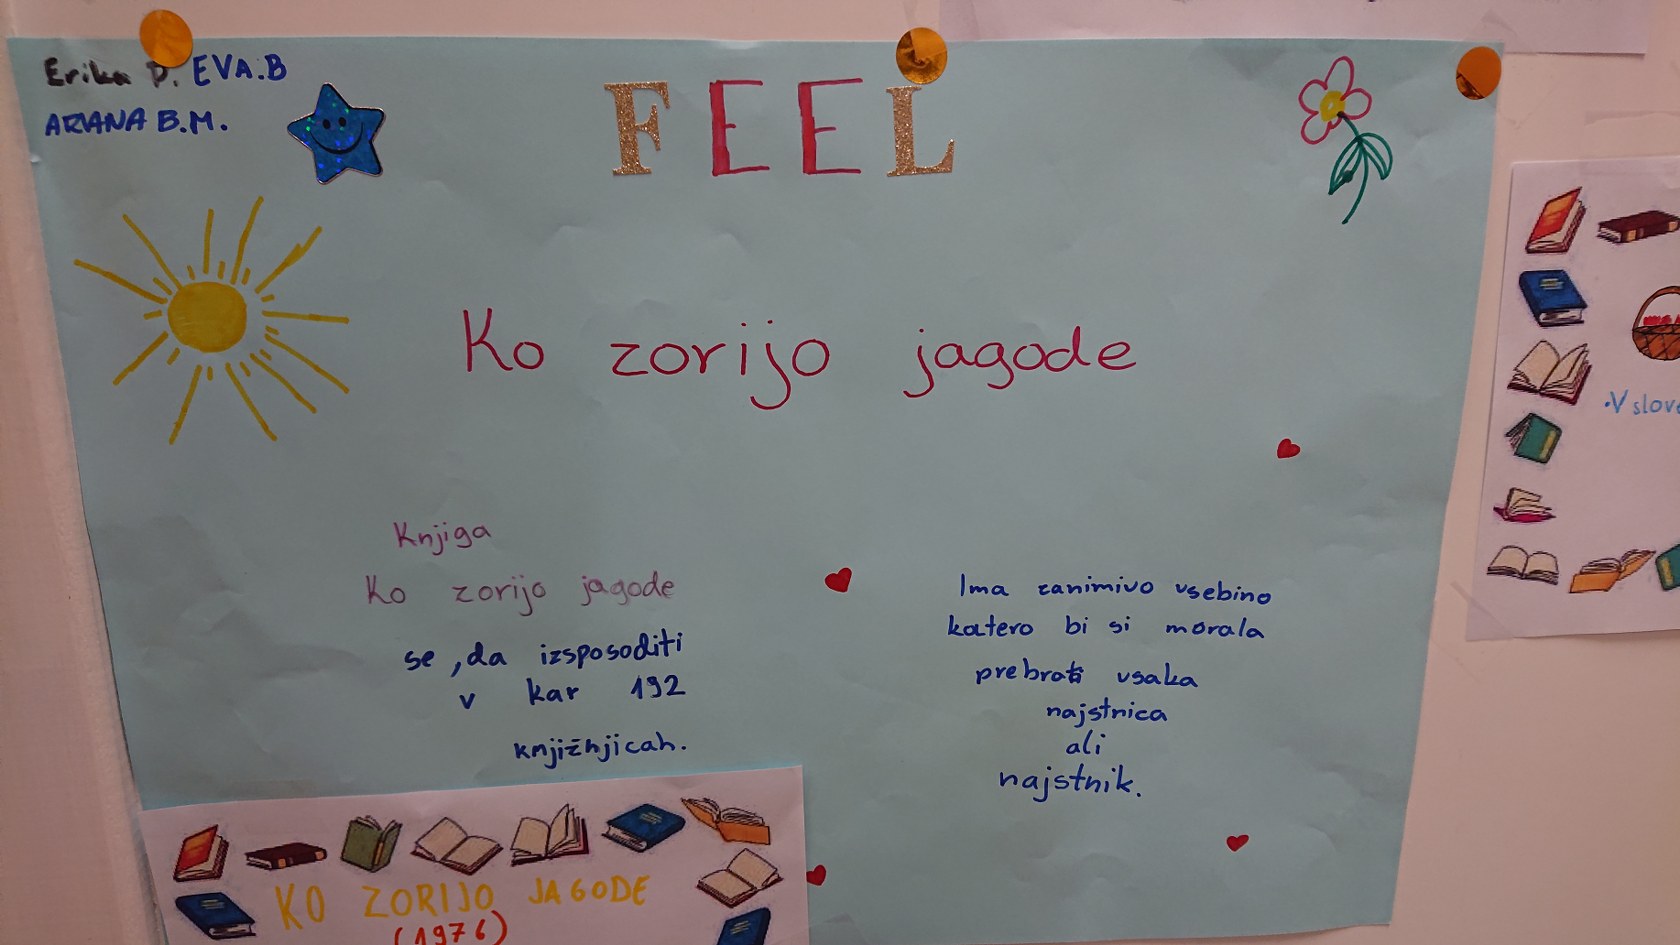 Erika P. EVA.B
ARIANA B.M.
FEEL
Ko zorijo jagode
Knjiga
Ko zorijo jagode
se ,da izsposoditi
v kar 192
knjižnjicah.
Ima zanimivo vsebino
katero bi si morala
prebrati vsaka
najstnica
ali
najstnik.
KO ZORIJO JAGODE
(1976)
•V slov